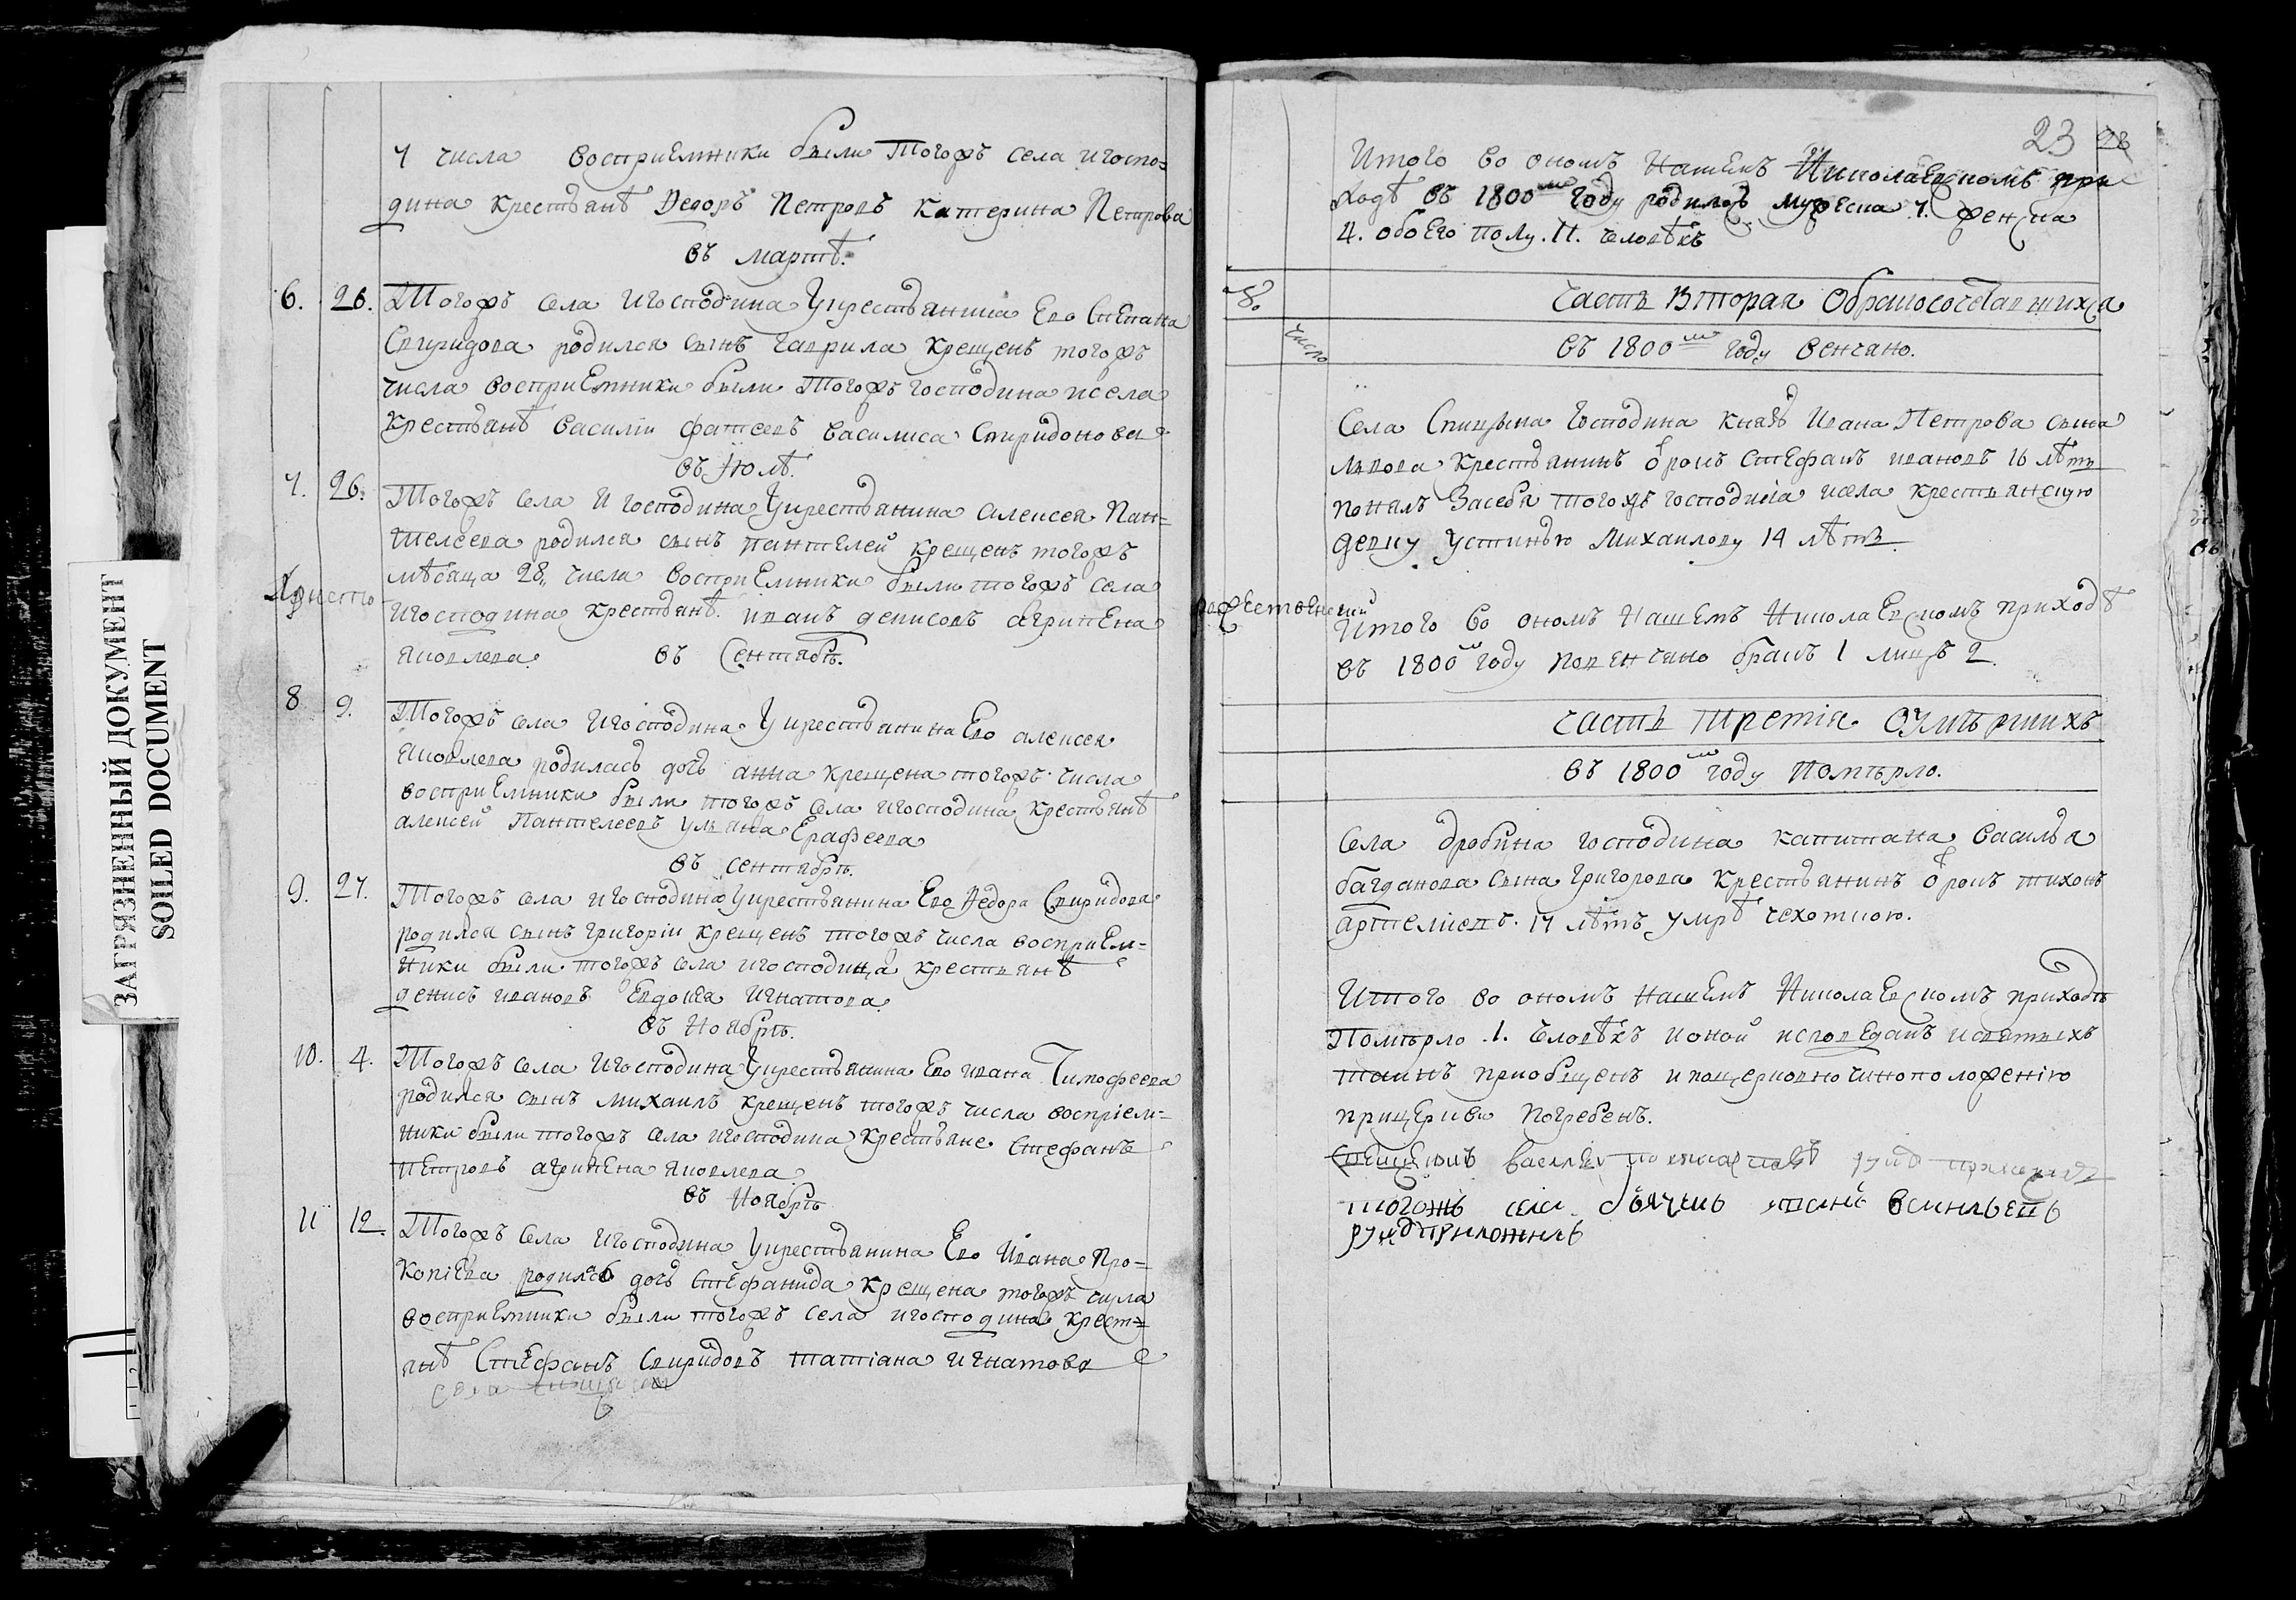 7 числа восприемники были тогожъ села игоспо=
дина крестьянѣ Ѳедоръ Петровъ Катерина Петрова
въ мартѣ.
6. 26. Тогожъ села игосподина укрестьянина Ево Степана
Спиридова родился сынъ гаврила крещенъ тогожъ
числа восприемники были тогожъ господина исела
крестьянѣ василіи фатеевъ василиса Спиридонова
въ Июлѣ.
7. 26. Тогожъ села и господина укрестьянина алексея Пан=
телеева родился сынъ пантелей крещенъ тогожъ
мѣсяца 28 числа восприемники были тогожъ села
игосподина крестьянѣ. иванъ денисовъ агрипена
яковлева. въ Сентябрѣ.
Христо
8 9. Тогожъ села игосподина укрестьянина Ево алексея
яковлева родилась дочь анна крещена тогожъ числа
восприемники были тогожъ села игосподина крестьянѣ
алексей Пантелеевъ ульяна Ерафеева
въ сентябрѣ.
9. 27. Тогожъ села игосподина укрестьянина Ево Ѳедора Спиридова
родился сынъ григорiи крещенъ тогожъ числа восприем=
ники были тогожъ села игосподина крестьянѣ
денисъ ивановъ Евдокѣя Игнатова
въ Ноябрѣ.
10. 4. Тогожъ села игосподина укрестьянина Ево ивана Тимофеева
родился сынъ михаилъ крещенъ тогожъ числа воспріем=
ники были тогожъ села игосподина крестьяне Стефанъ
петровъ агрипена яковлева
въ Ноябрѣ
11 12. Тогожъ села игосподина укрестьянина Ево Ивана Про=
копіева родилась дочь Стефанида крещена тогожъ числа
восприемники были тогожъ села игосподина крестъ=
янѣ Стефанъ Спиридовъ татіана игнатова
23 28
Итого во ономъ нашемъ Николаевскомъ при
ходѣ въ 1800м году родилось мужеска 7. женска
4. обоего полу. 11. человѣкъ
№ часть вторая обракосочетавшихся
число въ 1800м году венчано.
Села Спицына господина князь ивана Петрова сына
львова крестьянинъ отрокъ стефанъ ивановъ 16 лѣтъ
понялъ засебя тогожъ господина исела крестьянскую
девку устинью михаилову 14 лѣтъ.
рожественский
Итого во ономъ нашемъ Николаевскомъ приходѣ
въ 1800м году повенчано бракъ 1 лицъ 2.
часть третіа оумѣршихъ
въ 1800м году помѣрло.
Села дробина господина капитана василья
багданова сына григорова крестьянинъ отрокъ тихонъ
артеміевъ. 17 лѣтъ умрѣ чехоткою.
Итого во ономъ нашемъ Николаевскомъ приходѣ
помѣрло .1. человѣкъ ионой исповеданъ исвятыхъ
таинъ приобщенъ ипоцерковно чиноположенію
прицеркви погребенъ.
Священикъ василей
тогожъ села дьячекъ васильевъ
руку приложилъ
ЗАГРЯЗНЕННЫЙ ДОКУМЕНТ
SOILED DOCUMENT